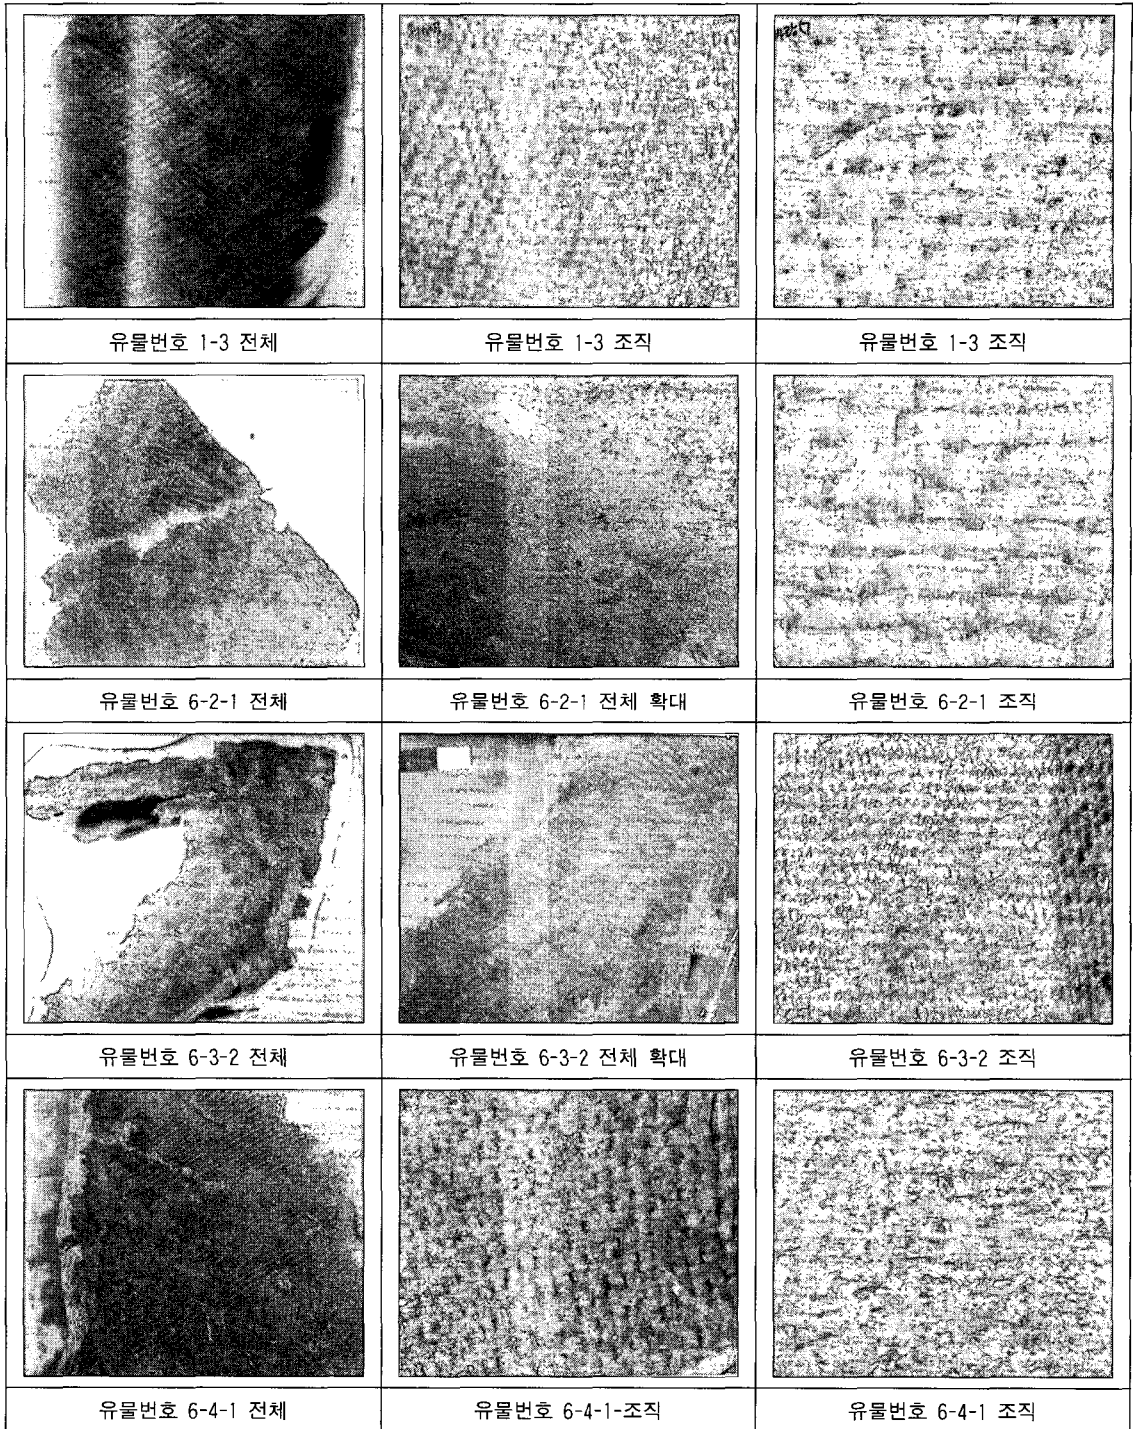 유물번호 1-3 전체
유물번호 1-3 조직
유물번호 1-3 조직
유물번호 6-2-1 전체
유물번호 6-2-1 전체 확대
유물번호 6-2-1 조직
유물번호 6-3-2 전체
유물번호 6-3-2 전체 확대
유물번호 6-3-2 조직
유물번호 6-4-1 전체
유물번호 6-4-1-조직
유물번호 6-4-1 조직